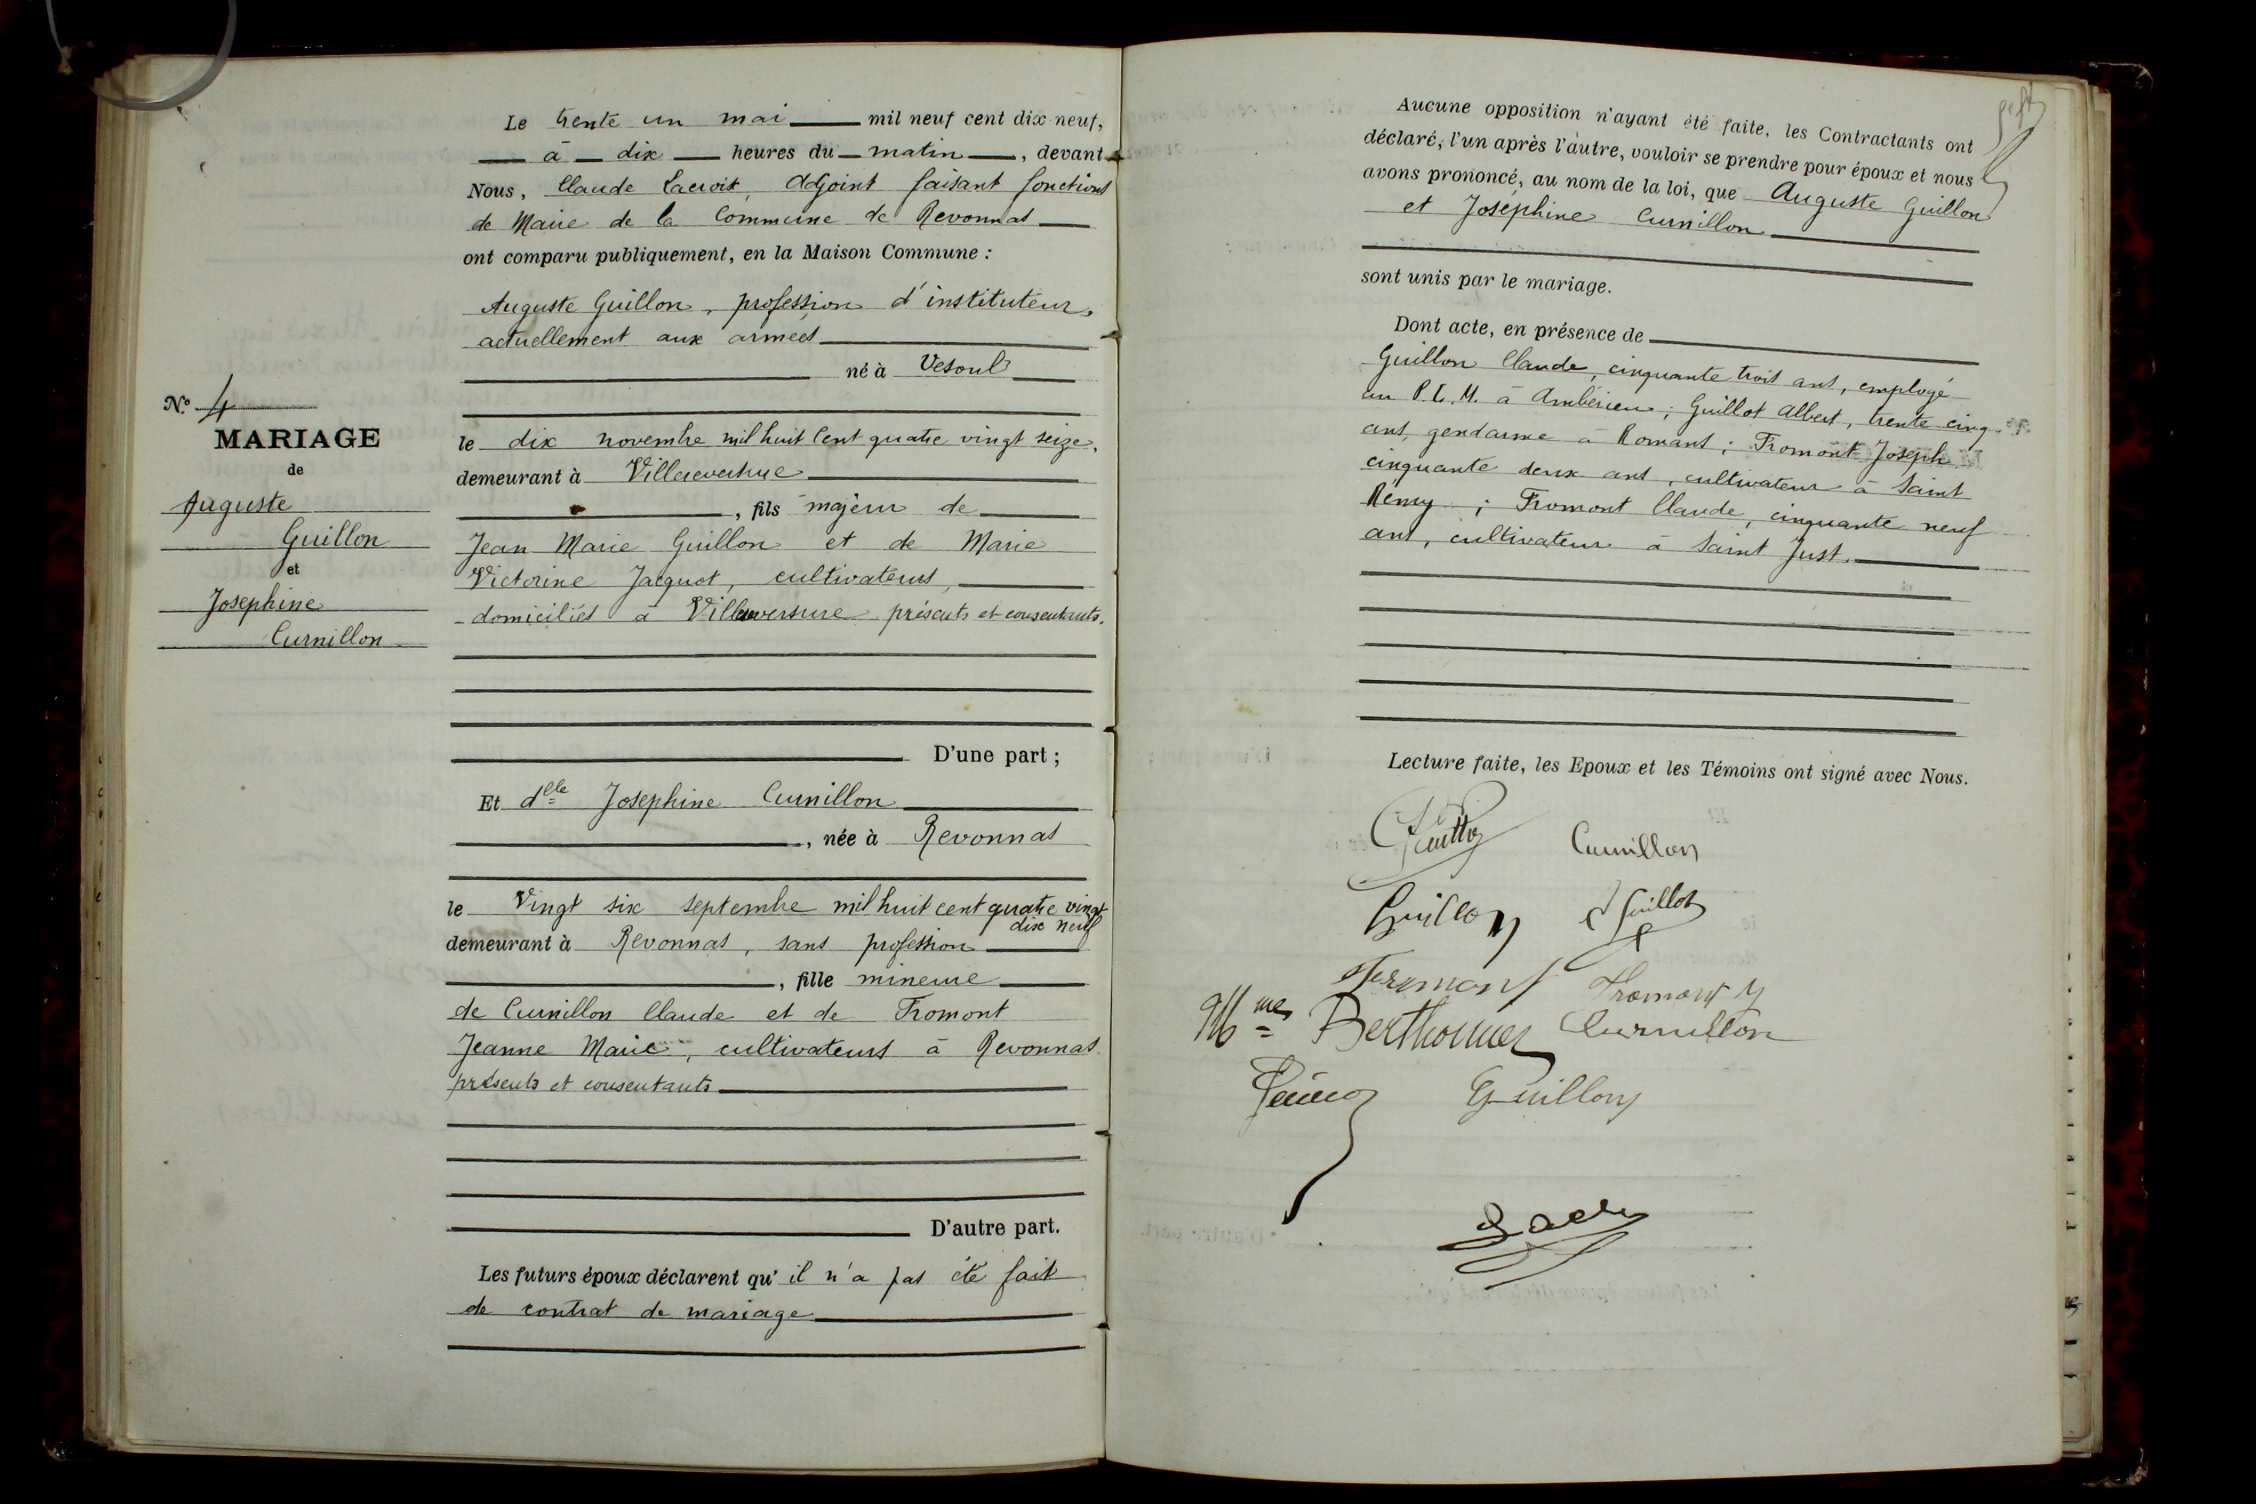 Le trente un mai mil neuf cent dix-neuf,
à dix heures du matin, devant
Nous, Claude Lacroix, Adjoint faisant fonctions
de Maire de la Commune de Revonnas
ont comparu publiquement, en la Maison Commune :
Auguste Guillon, profession d'instituteur,
actuellement aux armées
né à Vesoul
le dix novembre mil huit cent quatre vingt seize,
demeurant à Villereversure
, fils majeur de
Jean Marie Guillon et de Marie
Victorine Jacquot, cultivateurs,
domiciliés à Villereversure présents et consentants.
D'une part ;
Et dlle Josephine Curnillon
, née à Revonnas
le Vingt six septembre mil huit cent quatre vingt
dix neuf
demeurant à Revonnas, sans profession
, fille mineure
de Curnillon Claude et de Fromont
Jeanne Marie, cultivateurs à Revonnas
présents et consentants
D'autre part.
Les futurs époux déclarent qu'il n'a pas été fait
de contrat de mariage
N.o 4
MARIAGE
de
Auguste
Guillon
et
Josephine
Curnillon
sept
Aucune opposition n'ayant été faite, les Contractants ont
déclaré, l'un après l'autre, vouloir se prendre pour époux et nous
avons prononcé, au nom de la loi, que Auguste Guillon
et Joséphine Curnillon
sont unis par le mariage.
Dont acte, en présence de
Guillon Claude, cinquante trois ans, employé
au P.L.M. à Ambérieu ; Guillot Albert, trente cinq
ans, gendarme à Romans ; Fromont Joseph
cinquante deux ans, cultivateur à Saint
Remy ; Fromont Claude, cinquante neuf
ans, cultivateur à Saint Just.
Lecture faite, les Epoux et les Témoins ont signé avec Nous.
Curnillon
Guillon Guillot
Fromont Fromont J
Mmes Berthonnier Curnillon
Guillon